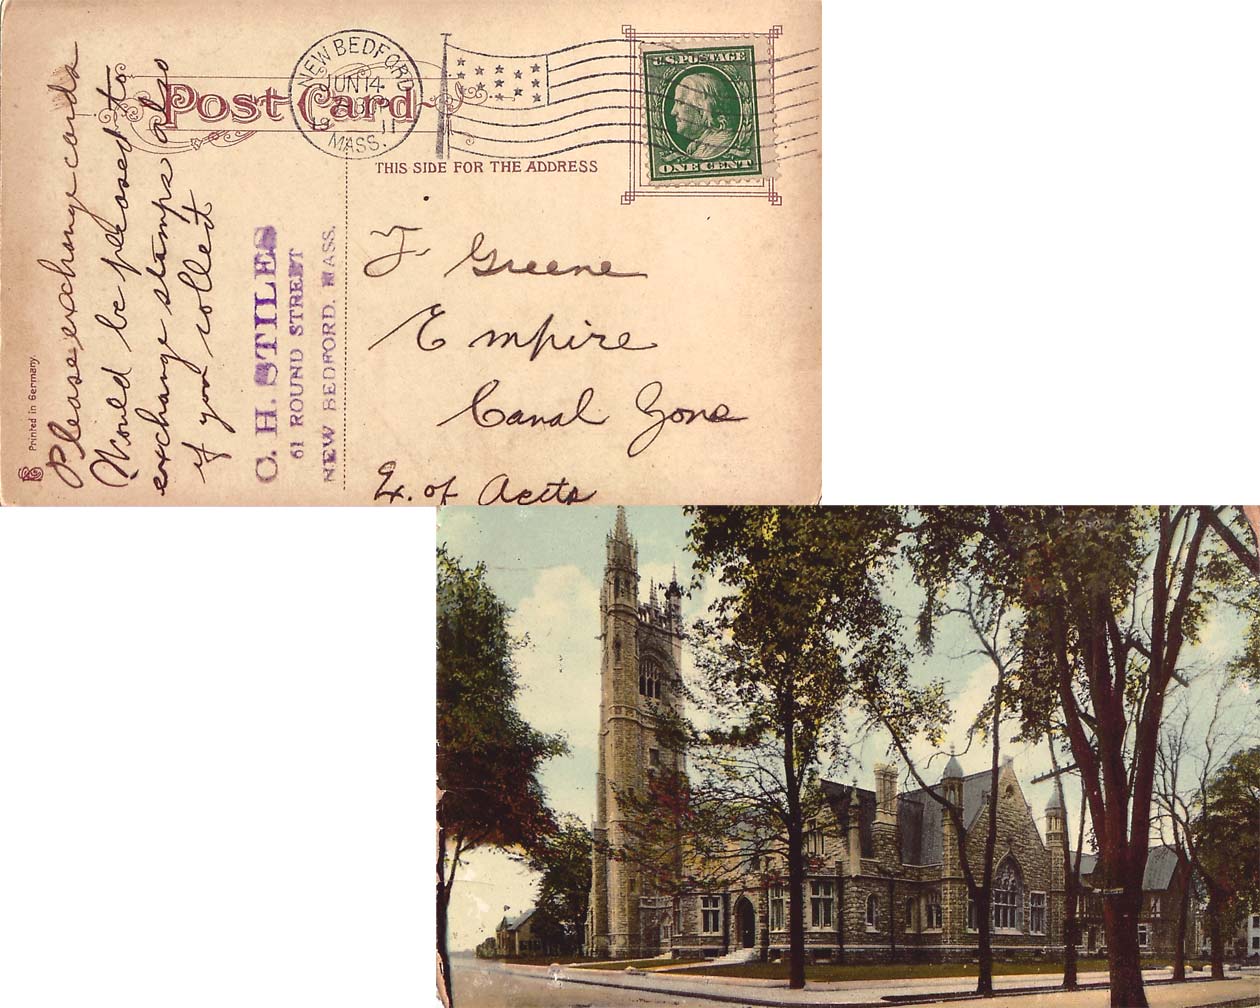 Post Card
THIS SIDE FOR THE ADDRESS
NEW BEDFORD
JUN 14
11
MASS.
U.S. POSTAGE
ONE CENT
Please exchange cards
Would be pleased to
exchange stamps also
if you collect
C. H. STILES
61 ROUND STREET
NEW BEDFORD, MASS.
Printed in Germany
F. Greene
Empire
Canal Zone
Ex. of Accts